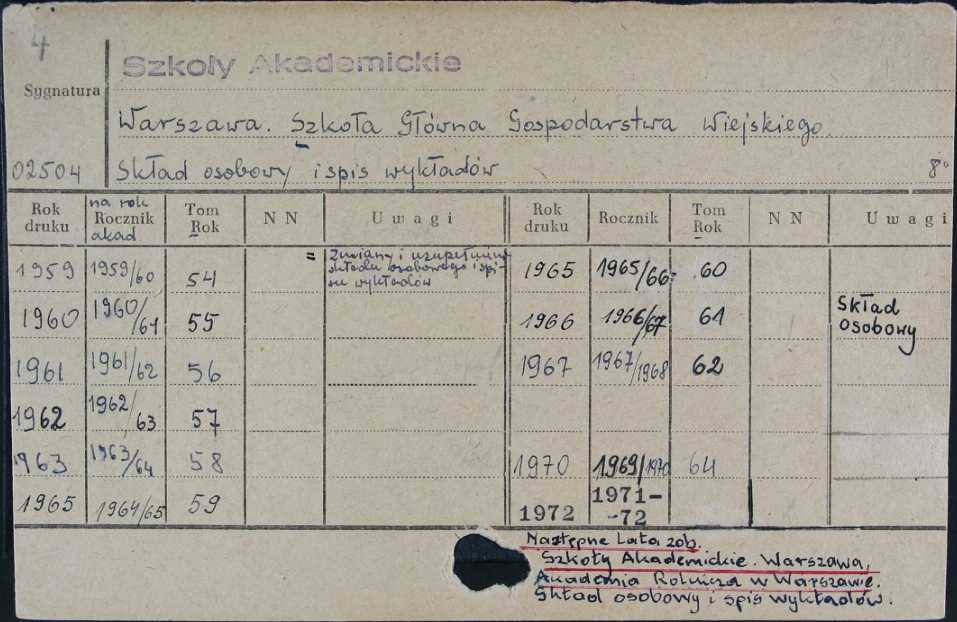 4
Szkoły Akademickie
Sygnatura
Warszawa. Szkoła Główna Gospodarstwa Wiejskiego.
02504 Skład osobowy i spis wykładów 8°
Rok druku na rok Rocznik akad Tom Rok N N Uwagi Rok druku Rocznik Tom Rok N N Uwagi
1959 1959/60 54 = Zmiany i uzupełnienia składu osobowego i spisu wykładów 1965 1965/66 60
1960 1960/61 55 1966 1966/67 61 Skład osobowy
1961 1961/62 56 1967 1967/1968 62
1962 1962/63 57
1963 1963/64 58 1970 1969/1970 64
1965 1964/65 59 1972 1971-
-72
Następne lata zob.
Szkoły Akademickie. Warszawa,
Akademia Rolnicza w Warszawie.
Skład osobowy i spis wykładów.